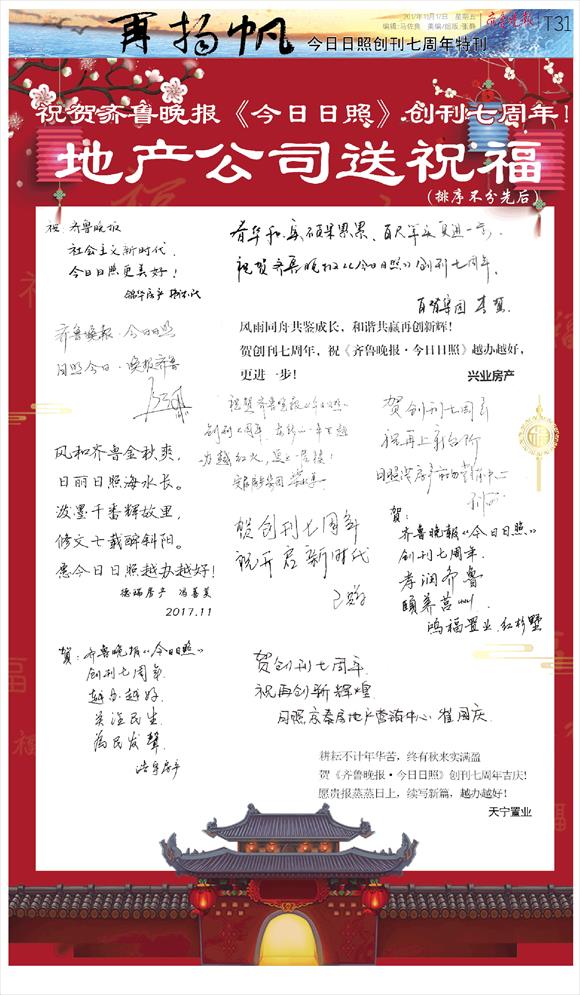 再扬帆
今日日照创刊七周年特刊
2017年11月17日 星期五
编辑:马佐良 美编/组版:张静
齐鲁晚报
T31
祝贺齐鲁晚报《今日日照》创刊七周年!
地产公司送祝福
(排序不分先后)
祝 齐鲁晚报
社会主义新时代,
今日日照更美好!
锦华房产
硕果累累、百尺竿头更进一步,
祝贺齐鲁晚报《今日日照》创刊七周年。
集团
风雨同舟共鉴成长,和谐共赢再创新辉!
贺创刊七周年,祝《齐鲁晚报·今日日照》越办越好,
更进一步!
兴业房产
齐鲁晚报·今日日照
日照今日·晚报齐鲁
祝贺齐鲁晚报《今日日照》
创刊七周年
贺创刊七周年
祝再上新台阶
风和齐鲁金秋爽,
日丽日照海水长。
泼墨千番辉故里,
修文七载醉斜阳。
愿今日日照越办越好!
德福房产 冯善美
2017.11
贺创刊七周年
祝开启新时代
贺:
齐鲁晚报《今日日照》
创刊七周年.
孝润齐鲁
颐养莒
鸿福置业.红杉墅
贺:齐鲁晚报《今日日照》
创刊七周年
越办越好.
关注民生
为民发声
浩宇房产
贺创刊七周年.
祝再创新辉煌
日照 房地产营销中心 崔国庆.
耕耘不计年华苦,终有秋来实满盈
贺《齐鲁晚报·今日日照》创刊七周年吉庆!
愿贵报蒸蒸日上,续写新篇,越办越好!
天宁置业